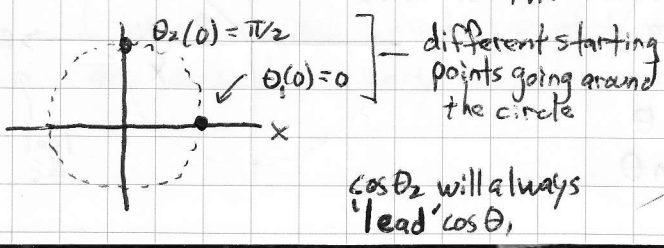 θ₂(0) = π/2
θ₁(0) = 0
] — different starting
points going around
the circle
x
cos θ₂ will always
'lead' cos θ₁